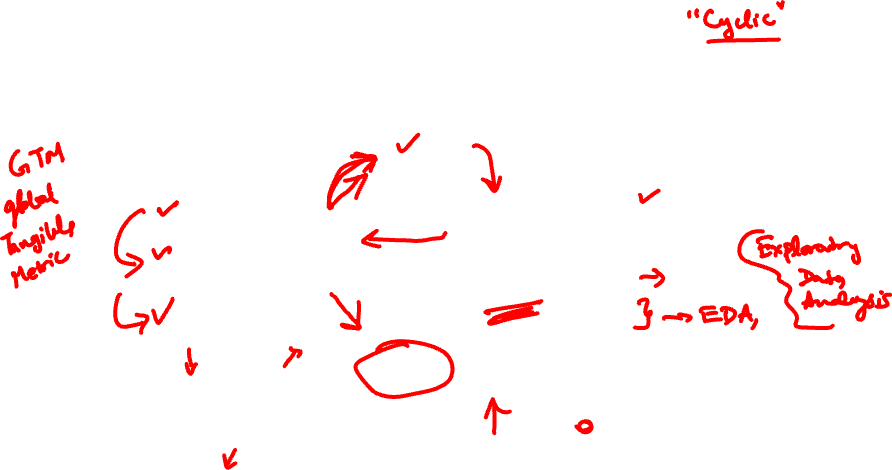 "Cyclic"
GTM
global
Tangible
Metric
Exploratory
Data
Analysis
} → EDA,